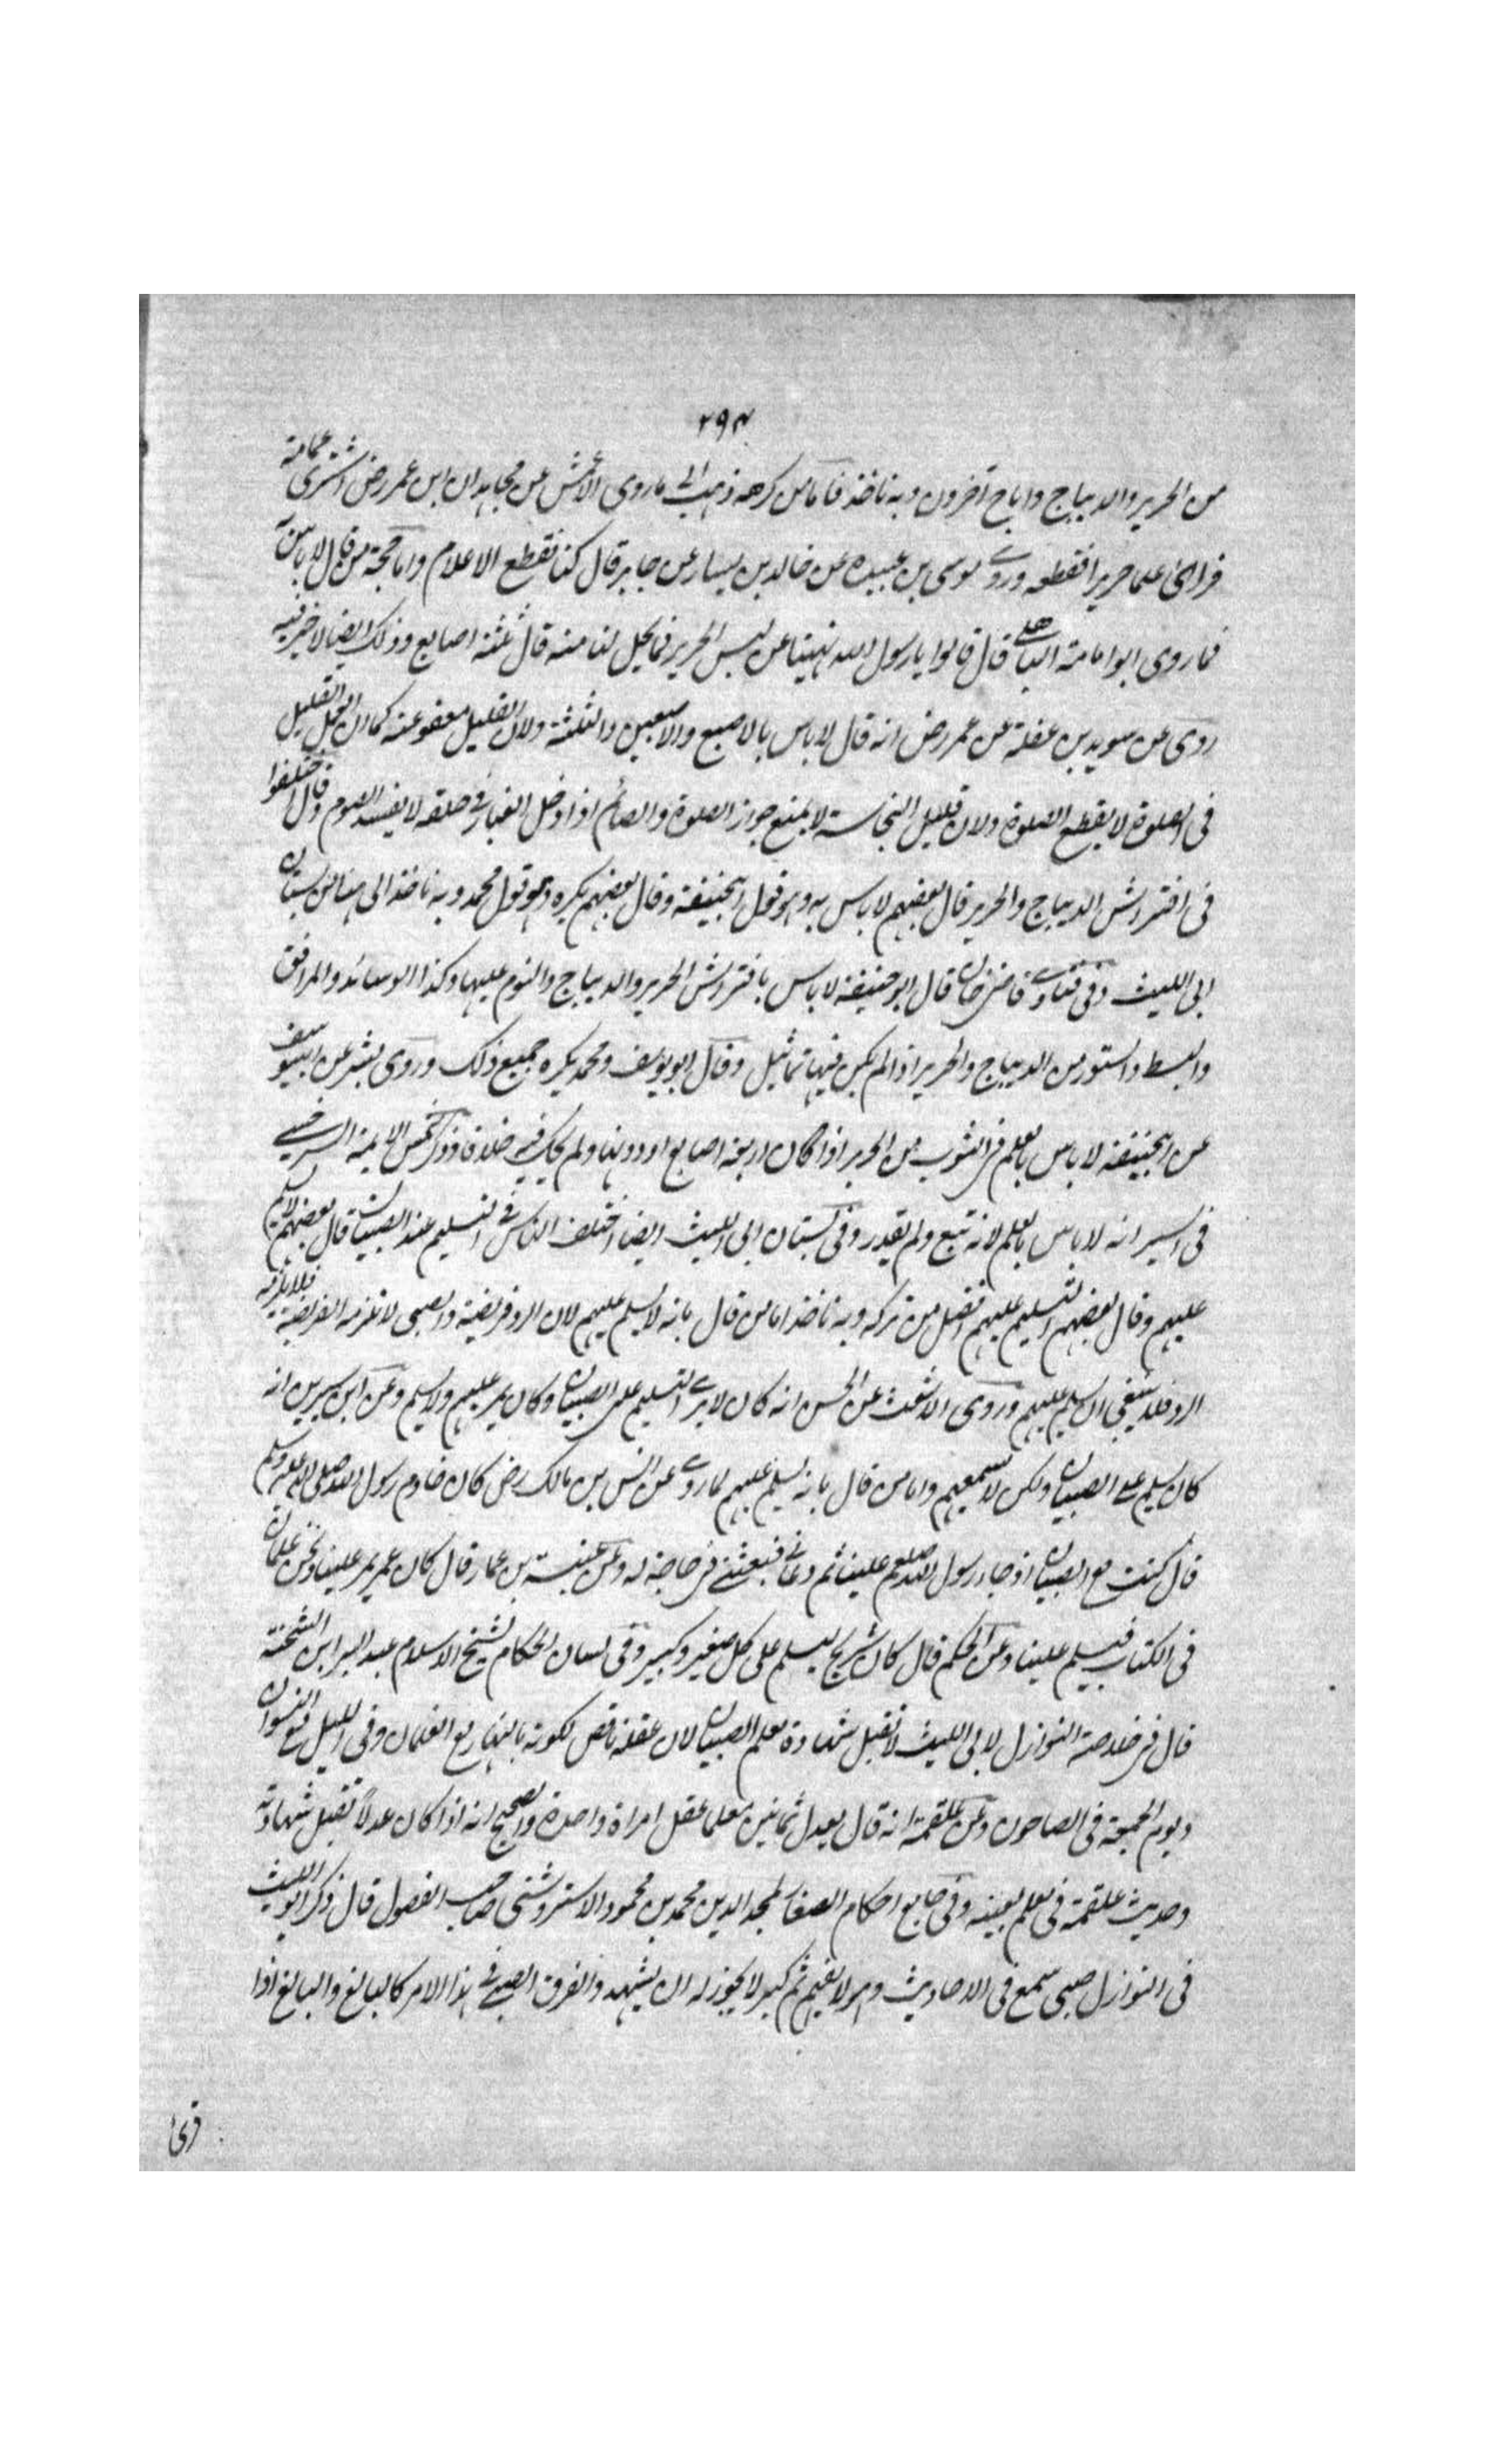 ۲۹۴
من الحرير والديباج واباح آخرون وبه ناخذ فاما من كرهه ذهب الى ما روى الاعمش عن مجاهد ان ابن عمر رض اشترى عمامة
فراى علما حريرا فقطعه وروى موسى بن عبيده عن خالد بن يسار عن جابر قال كنا نقطع الاعلام واما حجة من قال لا باس به
فما روى ابو امامة الباهلى قال قالوا يا رسول الله نهيتنا عن لبس الحرير فما يحل لنا منه قال ثلثة اصابع وذلك ايضا لا خير فيه
روى عن سويد بن غفلة عن عمر رض انه قال لا باس بالاصبع والاصبعين والثلثة ولان القليل معفو عنه كما ان العمل القليل
فى الصلوة لا يقطع الصلوة ولان قليل النجاسة لا يمنع جواز الصلوة والصائم اذا دخل الغبار فى حلقه لا يفسد الصوم وقال اختلفوا
فى افتراش الديباج والحرير قال بعضهم لا باس به وهو قول ابيحنيفة وقال بعضهم يكره وهو قول محمد وبه ناخذ الى هنا من بستان
ابى الليث وفى فتاوى قاضى خان قال ابو حنيفة لا باس بافتراش الحرير والديباج والنوم عليها وكذا الوسائد والمرافق
والبسط والستور من الديباج والحرير اذا لم يكن فيها تماثيل وقال ابو يوسف ومحمد يكره جميع ذلك وروى بشر عن ابييوسف
عن ابيحنيفة لا باس بالعلم فى الثوب من الحرير اذا كان اربعة اصابع او دونها ولم يحك فيه خلافا وذكر شمس الايمة السرخسى
فى السير انه لا باس بالعلم لانه تبع ولم يقدر وفى بستان ابى الليث ايضا اختلف الناس فى التسليم عند الصبيان قال بعضهم لا يسلم
عليهم وقال بعضهم التسليم عليهم افضل من تركه وبه ناخذ اما من قال بانه لا يسلم عليهم لان الرد فريضة والصبى لا تلزمه الفريضة فلا يلزمه
الرد فلا ينبغى ان يسلم عليهم وروى الاشعث عن الحسن انه كان لا يرى التسليم على الصبيان وكان يمر عليهم ولا يسلم وعن ابن سيرين انه
كان يسلم على الصبيان ولكن لا يسمعهم واما من قال بانه يسلم عليهم لما روى عن انس بن مالك رض كان خادم رسول الله صلى الله عليه وسلم
قال كنت مع الصبيان اذ جاء رسول الله صلعم علينا ثم دعانى فبعثنى فى حاجة له وعن عنبسة بن عمار قال كان عمر يمر علينا ونحن غلمان
فى الكتاب فيسلم علينا وعن الحكم قال كان شريح يسلم على كل صغير وكبير وفى لسان الحكام لشيخ الاسلام عبد البر ابن الشحنة
قال فى خلاصة النوازل لابى الليث لا تقبل شهادة معلم الصبيان لان عقله ناقص لكونه بالنهار مع الغلمان وفى الليل مع النسوان
ويوم الجمعة فى الصاحون وعن علقمة انه قال يعدل ثمانين معلما عقل امراة واحدة والصحيح انه اذا كان عدلا تقبل شهادته
وحديث علقمة فى معلم بعينه وفى جامع احكام الصغار لمجد الدين محمد بن محمود الاستروشنى صاحب الفصول قال ذكر ابو الليث
فى النوازل صبى سمع فى الاحاديث وهو لا يفهم ثم كبر لا يجوز له ان يشهد والفرق الصبى فى هذا الامر كالبالغ والبالغ اذا
قرئ